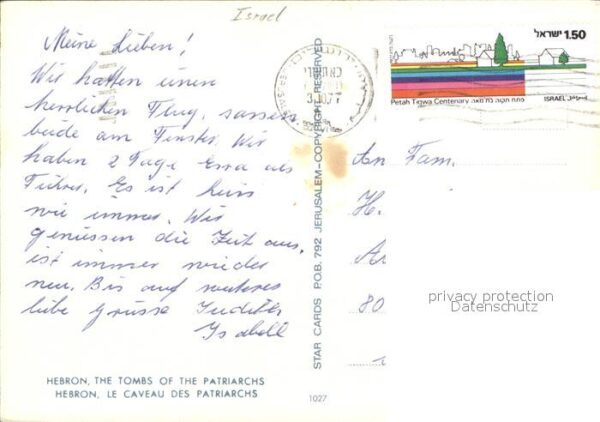 Israel
Meine Lieben!
Wir hatten einen
herrlichen Flug, sassen
beide am Fenster. Wir
haben 2 Tage Esra als
Führer. Es ist heiss
wie immer. Wir
geniessen die Zeit aus.
ist immer wieder
neu. Bis auf weiteres
liebe Grüsse Judith
Isabell
HEBRON, THE TOMBS OF THE PATRIARCHS
HEBRON, LE CAVEAU DES PATRIARCHS
1027
STAR CARDS P.O.B. 792 JERUSALEM–COPYRIGHT RESERVED
ישראל 1.50
Petah Tiqwa Centenary פתח תקוה מאה שנה ISRAEL إسرائيل
An Fam.
H.
80
privacy protection
Datenschutz